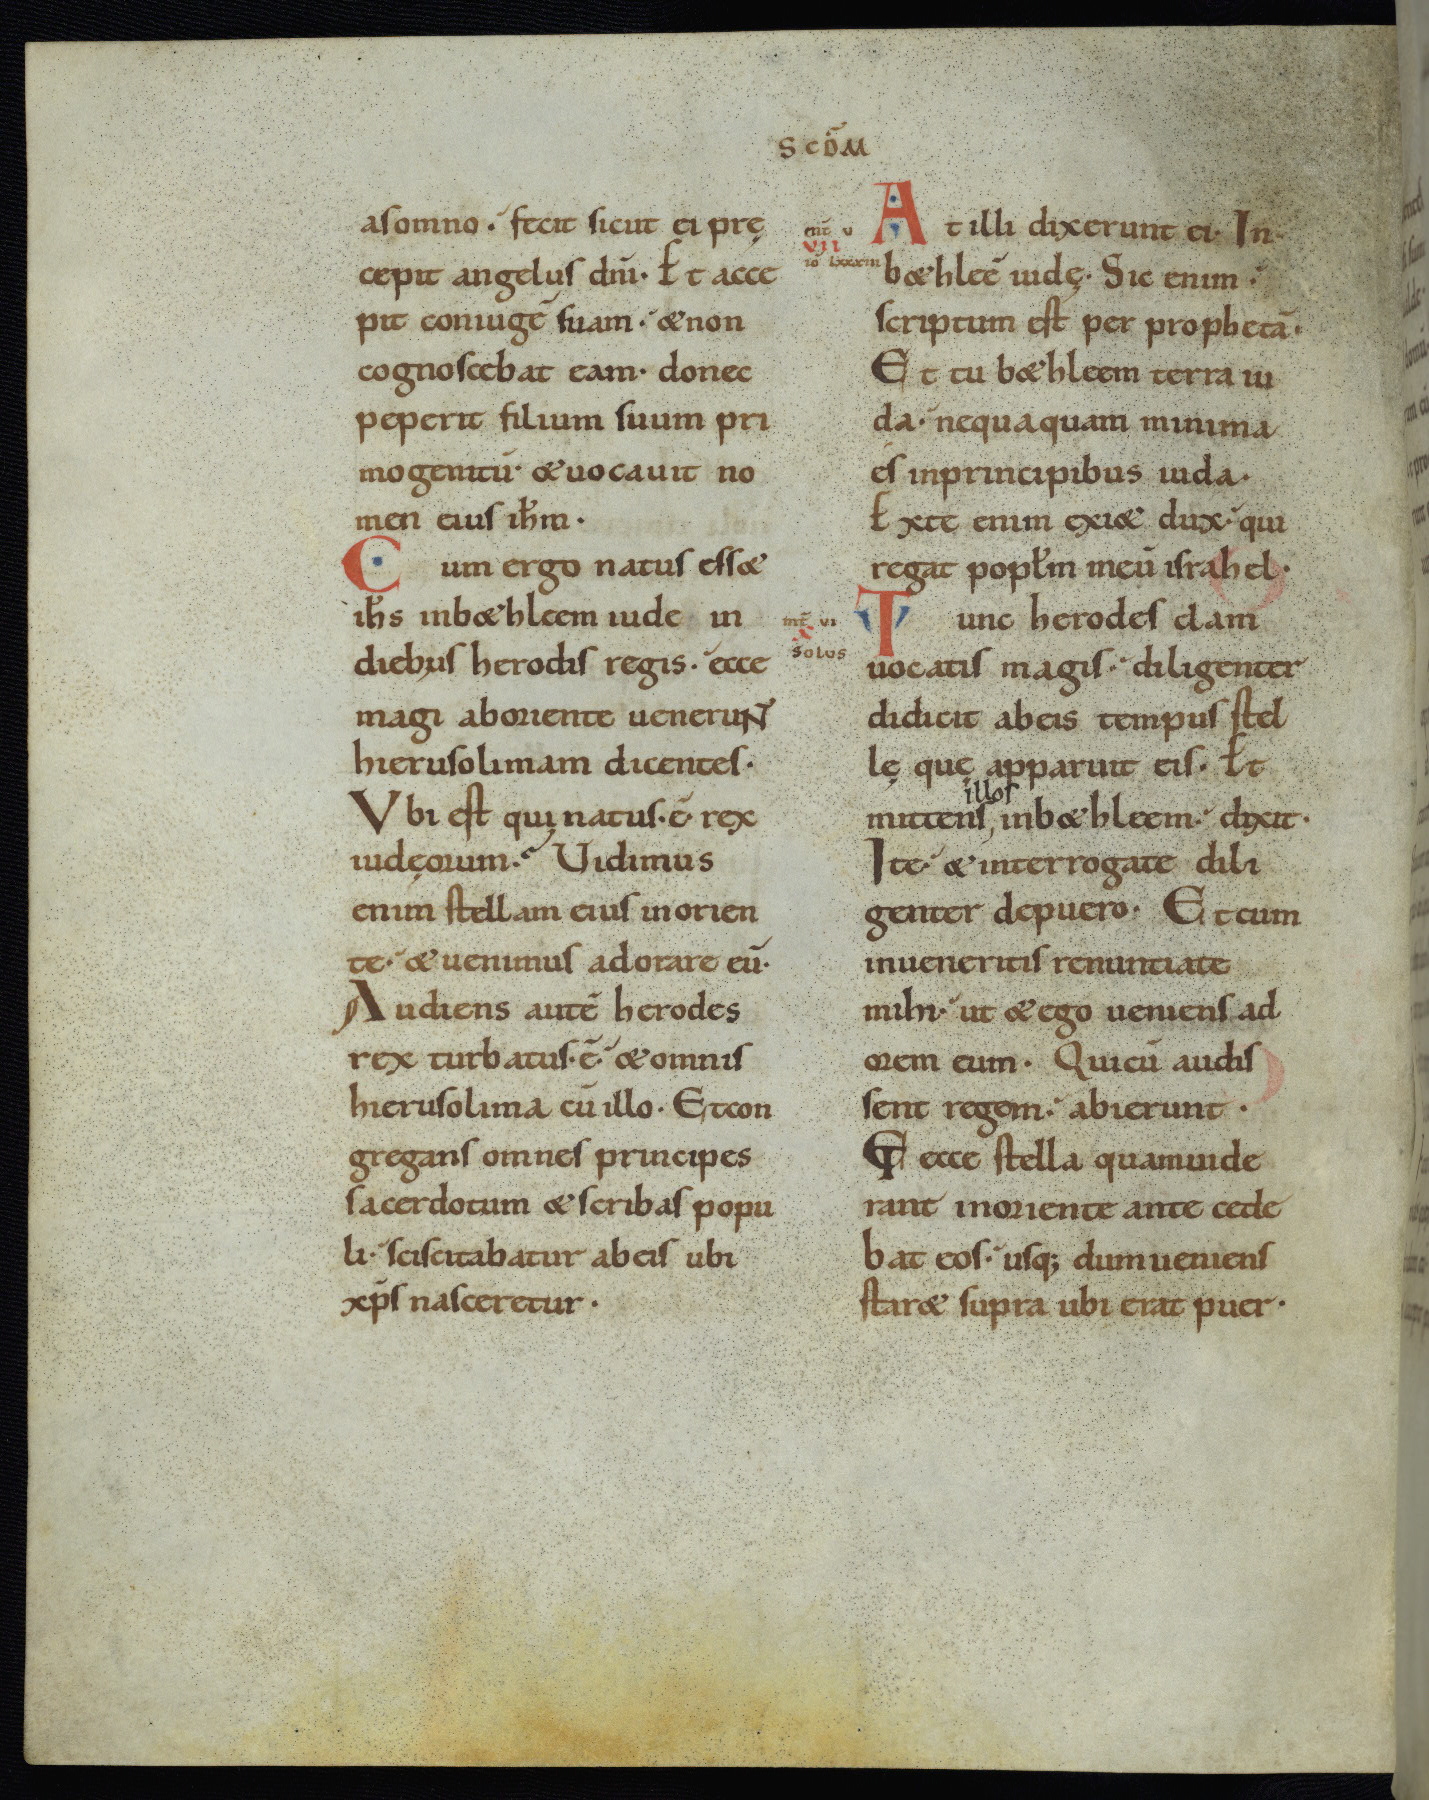 SCDM̄
asomno. fecit sicut ei pre̜
cepit angelus dn̄i. Et acce
pit coniugē suam. &non
cognoscebat eam. donec
peperit filium suum pri
mogenitū. &uocauit no
men eius ih̄m.
Cum ergo natus ess&
ih̄s inb&hleem iude in
diebus herodis regis. ecce
magi aboriente ueneruN̄
hierusolimam dicentes.
Vbi est qui natus.ē. rex
iude̜orum. Uidimus
enim stellam eius inorien
te. &uenimus adorare eū.
Audiens autē herodes
rex turbatus.ē. &omnis
hierusolima cū illo. Etcon
gregans omnes principes
sacerdotum &scribas popu
li. sciscitabatur abeis ubi
xp̄s nasceretur.
mt̄ v
VII
io lxxxiii
At illi dixerunt ei. In
b&hleē iude̜. Sic enim
scriptum est per prophetā.
Et tu b&hleem terra iu
da. nequaquam minima
es inprincipibus iuda.
Exte enim exi& dux. qui
regat popl̄m meū israhel.
mt̄ vi
X
Solus
Tunc herodes clam
uocatis magis. diligenter
didicit abeis tempus stel
le̜ que̜ apparuit eis. Et
illos
mittens, inb&hleem. dixit.
Ite. &interrogate dili
genter depuero. Etcum
inueneritis renuntiate
mihi. ut &ego ueniens ad
orem eum. Quicū audis
sent regem. abierunt.
Et ecce stella quamuide
rant inoriente ante cede
bat eos. usq; dumueniens
star& supra ubi erat puer.